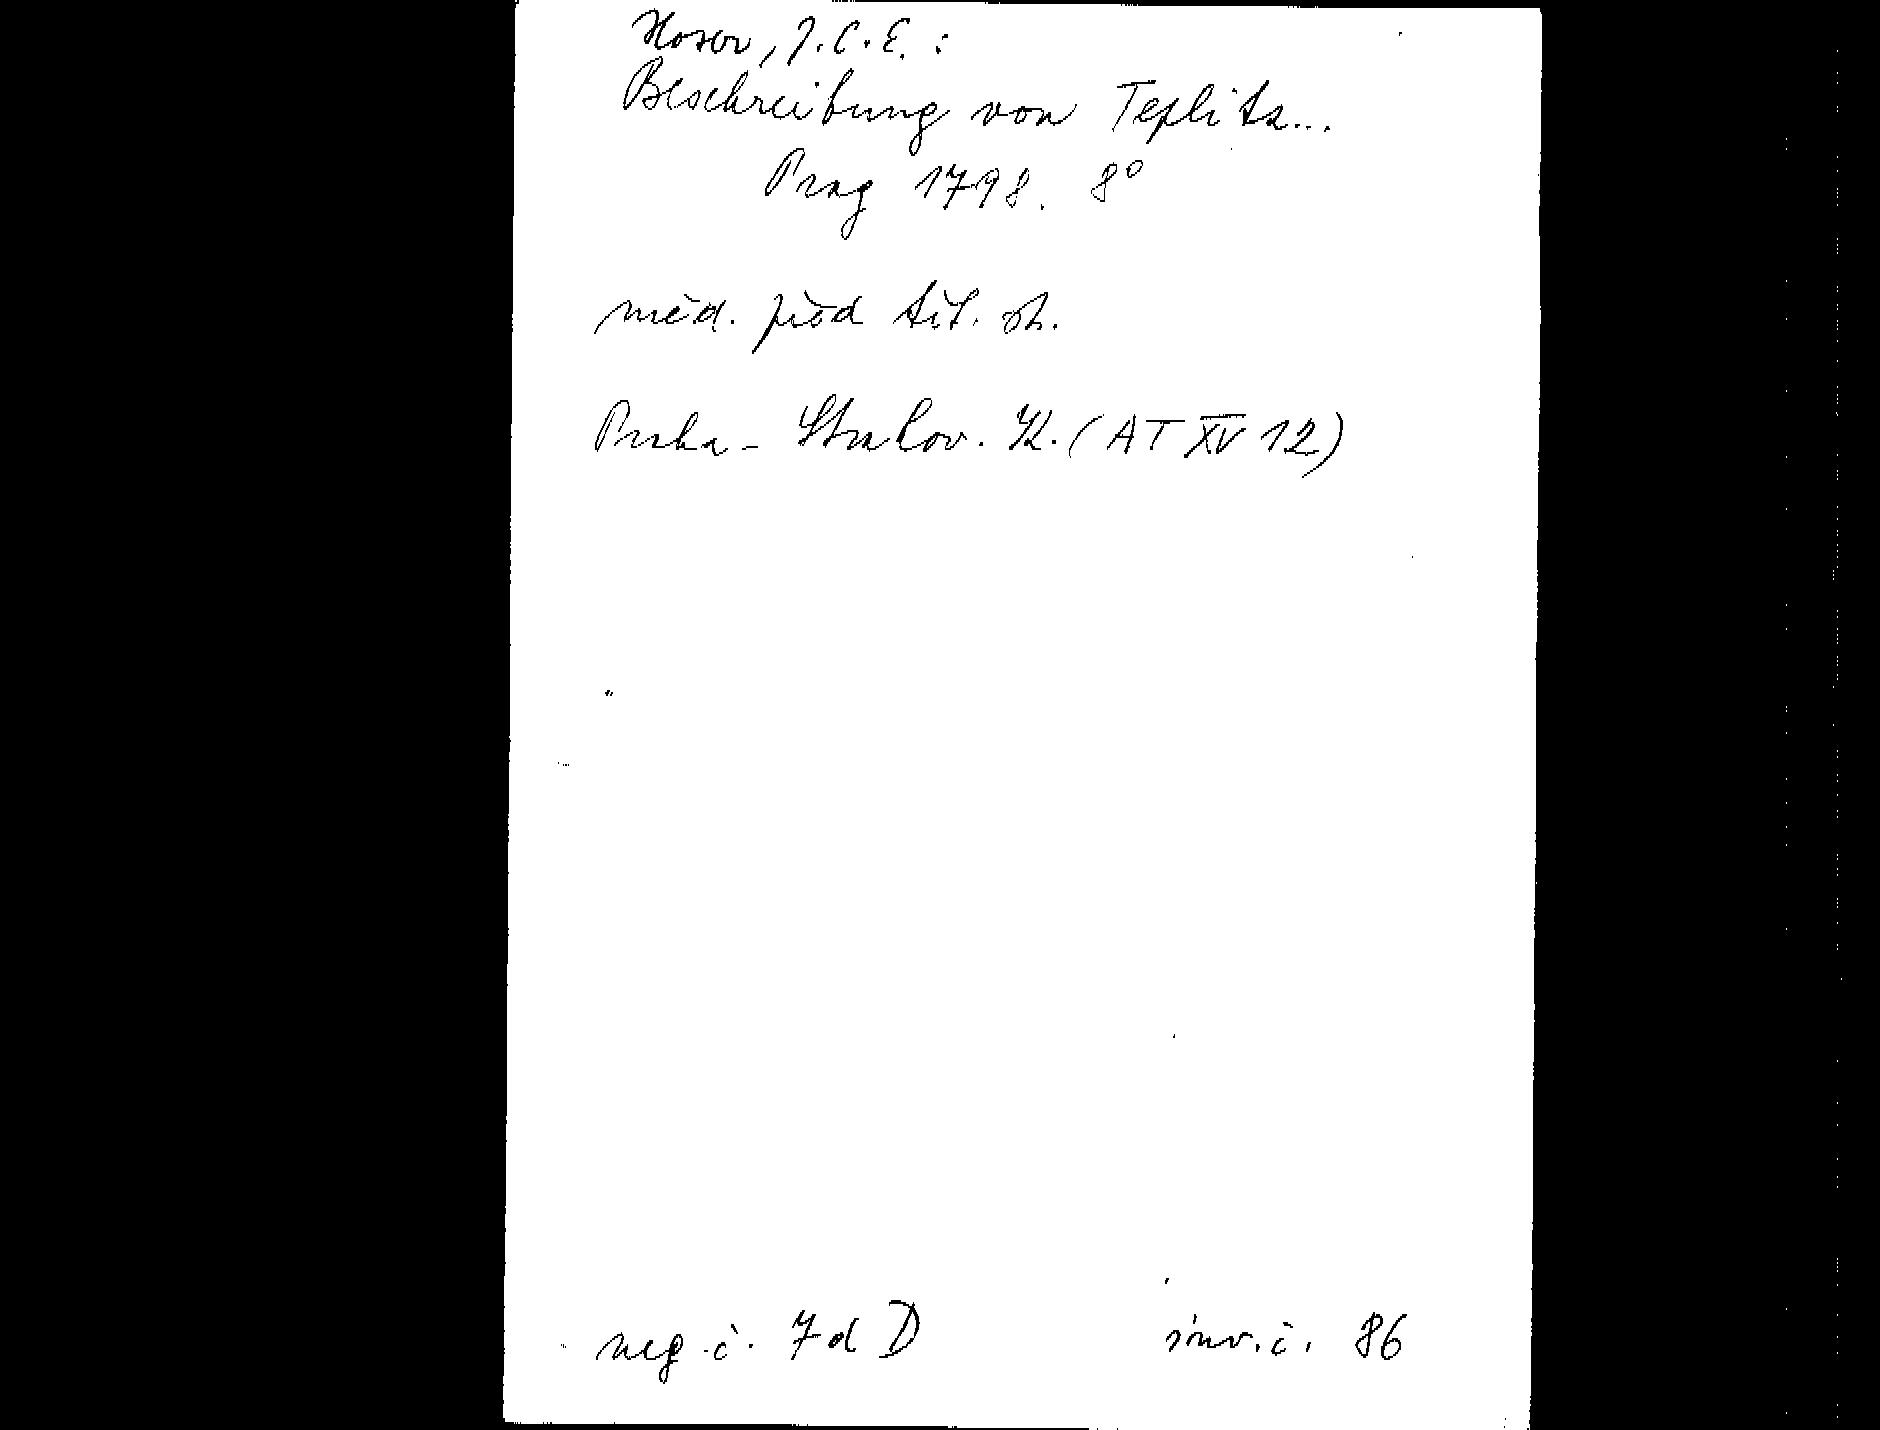 Hoser, J.C.E.:
Beschreibung von Teplitz...
Prag 1798. 8°
měd. před tit. st.
Praha - Strahov. K. (AT XV 12)
neg. č. 7 d D inv. č. 86